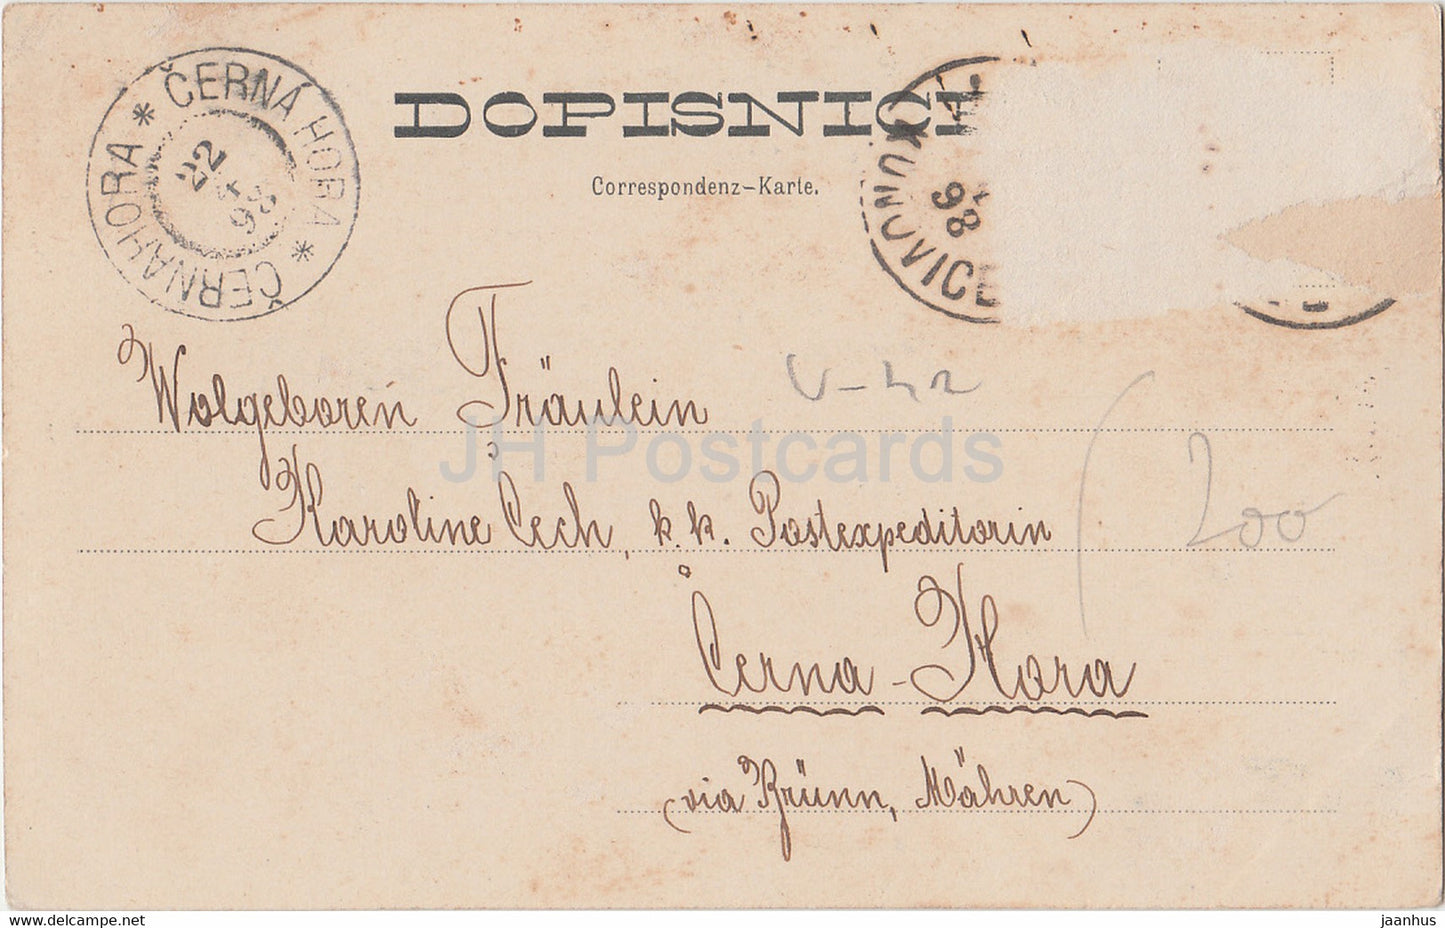 ČERNÁ HORA * ČERNAHORA *
22
4
98
DOPISNIC
98
Correspondenz-Karte.
Wolgeboren Fräulein
V-42
Karoline Čech, k. k. Postexpeditorin
200
Černa-Hora
(via Brünn, Mähren)
JH Postcards
delcampe.net
jaanhus